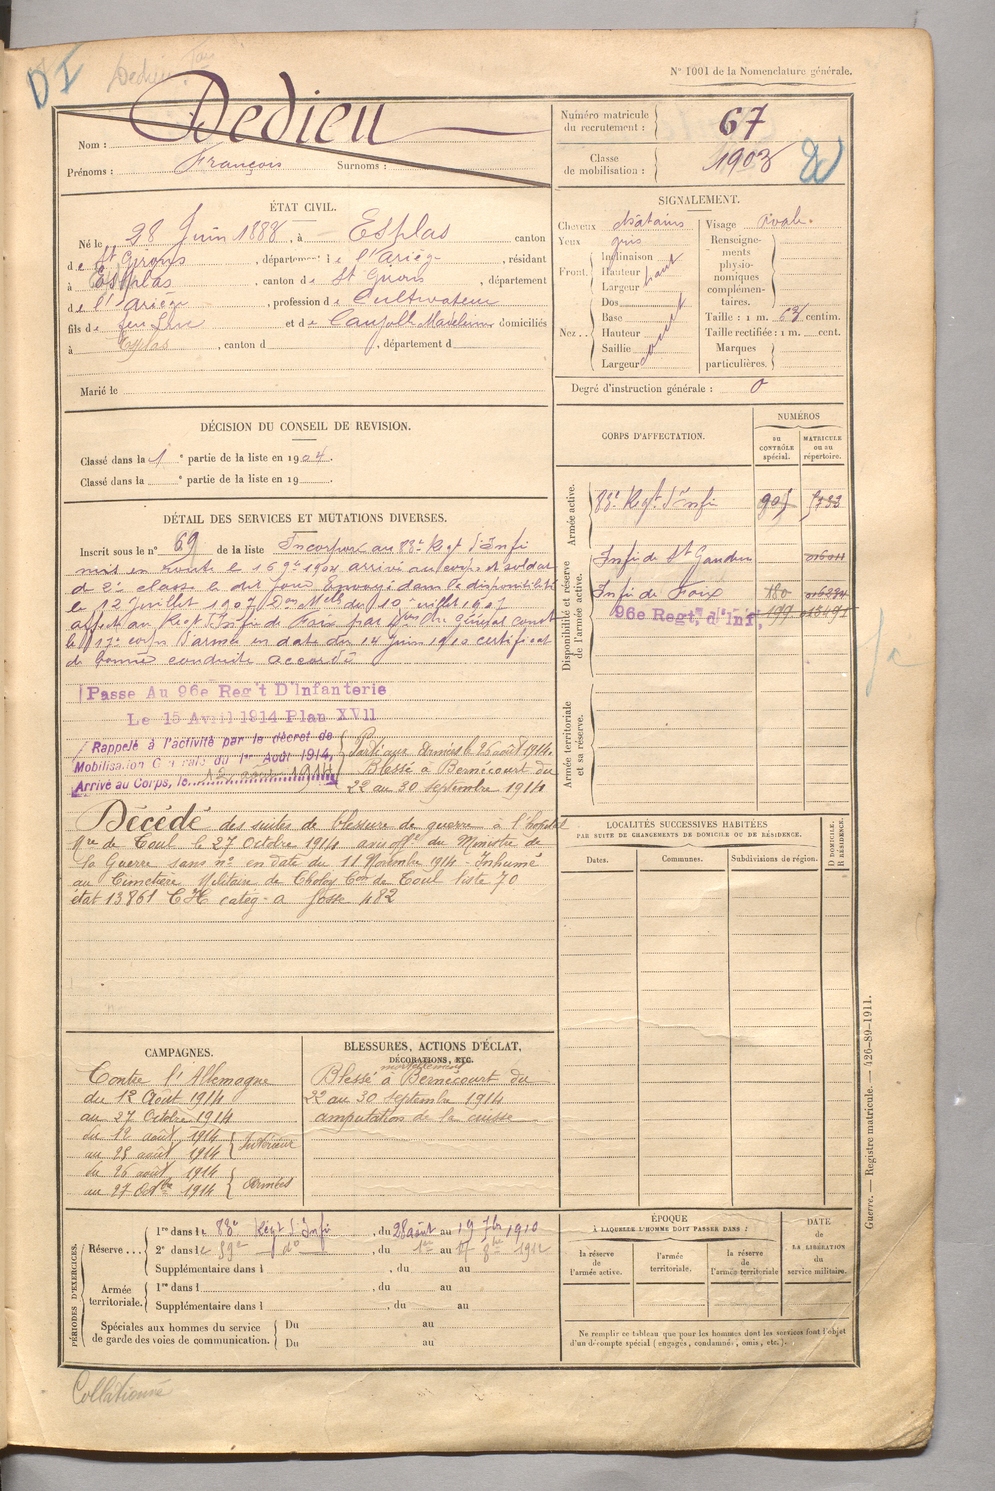 D I
Dedieu
N° 1001 de la Nomenclature générale.
Nom : Dedieu
Prénoms : François Surnoms :
Numéro matricule du recrutement : 67
Classe de mobilisation : 1903
ÉTAT CIVIL.
Né le 28 Juin 1888, à Esplas canton
de St Girons, département de l'Ariège, résidant
à Esplas, canton de St Girons, département
de l'Ariège, profession de Cultivateur
fils de feu et de Caujolle Madeleine domiciliés
à Esplas, canton d , département d
Marié le
SIGNALEMENT.
Cheveux chatains
Yeux gris
Front. Inclinaison
Hauteur haut
Largeur
Nez.. Dos
Base
Hauteur
Saillie
Largeur
Visage Ovale.
Renseignements physionomiques complémentaires.
Taille : 1 m. 63 centim.
Taille rectifiée : 1 m. cent.
Marques particulières.
Degré d'instruction générale : 0
DÉCISION DU CONSEIL DE REVISION.
Classé dans la 1 e partie de la liste en 1904.
Classé dans la e partie de la liste en 19 .
CORPS D'AFFECTATION.
NUMÉROS
au CONTRÔLE spécial.
MATRICULE ou au répertoire.
Armée active.
83e Regt d'Infie
Disponibilité et réserve de l'armée active.
Infie de St Gaudens
Infie de Foix 180
96e Regt, d'Inf, 199
Armée territoriale et sa réserve.
DÉTAIL DES SERVICES ET MUTATIONS DIVERSES.
Inscrit sous le n° 69 de la liste Incorporé au 83e Regt d'Infie
mis en route le 16 9re 1904 arrivé au corps et soldat
de 2e classe le dit jour. Envoyé dans la disponibilité
le 12 Juillet 1907 Don Melle du 10 Juillet 1907
affecté au Regt d'Infie de Foix par le Général comt
le 17e corps d'armée en date du 14 Juin 1910 certificat
de bonne conduite accordé
Passe Au 96e Reg't D'Infanterie
Le 15 Avril 1914 Plan XVII
Rappelé à l'activité par le décret de
Mobilisation Générale du 1er Août 1914,
Arrivé au Corps, le 12 août 1914
Parti aux Armées le 26 août 1914.
Blessé à Bernécourt du
22 au 30 septembre 1914
Décédé des suites de blessure de guerre à l'hopital
Mre de Toul le 27 Octobre 1914 avis offel du Ministre de
la Guerre sans n° en date du 11 Novembre 1914 - Inhumé
au Cimetière Militaire de Choloy Con de Toul liste 70
état 13861 CH catég. a fosse 482
LOCALITÉS SUCCESSIVES HABITÉES
PAR SUITE DE CHANGEMENTS DE DOMICILE OU DE RÉSIDENCE.
Dates. Communes. Subdivisions de région.
D DOMICILE. R RÉSIDENCE.
CAMPAGNES.
Contre l'Allemagne
du 12 Août 1914
au 27 Octobre 1914
du 12 août 1914
au 25 août 1914 Intérieur
du 26 août 1914
au 27 Octbre 1914 Armées
BLESSURES, ACTIONS D'ÉCLAT,
DÉCORATIONS, ETC.
mortellement
Blessé à Bernécourt du
22 au 30 septembre 1914
amputation de la cuisse
PÉRIODES D'EXERCICES.
Réserve... 1re dans le 83e Regt d'Infie, du 28 août au 19 7bre 1910
2e dans le 59e do, du 1er au 17 8bre 1912
Supplémentaire dans l , du au
Armée territoriale. 1re dans l , du au
Supplémentaire dans l , du au
Spéciales aux hommes du service de garde des voies de communication. Du au
Du au
ÉPOQUE
À LAQUELLE L'HOMME DOIT PASSER DANS :
la réserve de l'armée active.
l'armée territoriale.
la réserve de l'armée territoriale
DATE DE LA LIBÉRATION du service militaire.
Ne remplir ce tableau que pour les hommes dont les services font l'objet
d'un décompte spécial (engagés, condamnés, omis, etc.).
Guerre. — Registre matricule. — 426-89-1911.
Collationné